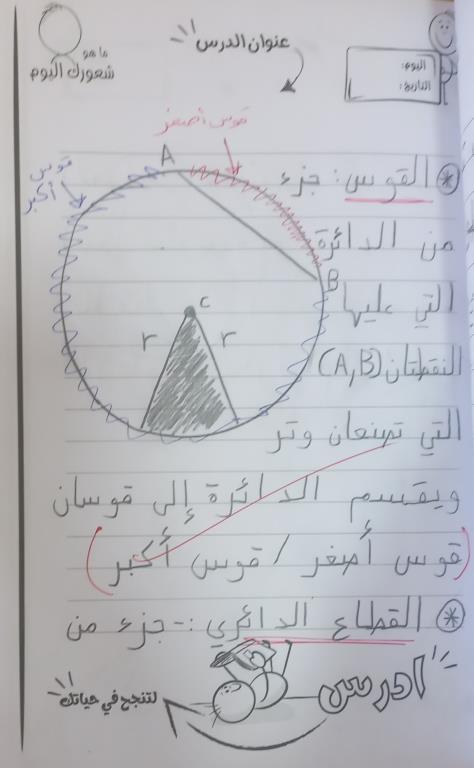 ما هو
شعورك اليوم
عنوان الدرس
اليوم:
التاريخ:
قوس أصغر
قوس
أكبر
A
B
c
r
r
القوس: جزء
من الدائرة
التي عليها
النقطتان (A,B)
التي تصنعان وتر
ويقسم الدائرة إلى قوسان
(قوس أصغر / قوس أكبر)
القطاع الدائري :- جزء من
ادرس
لتنجح في حياتك